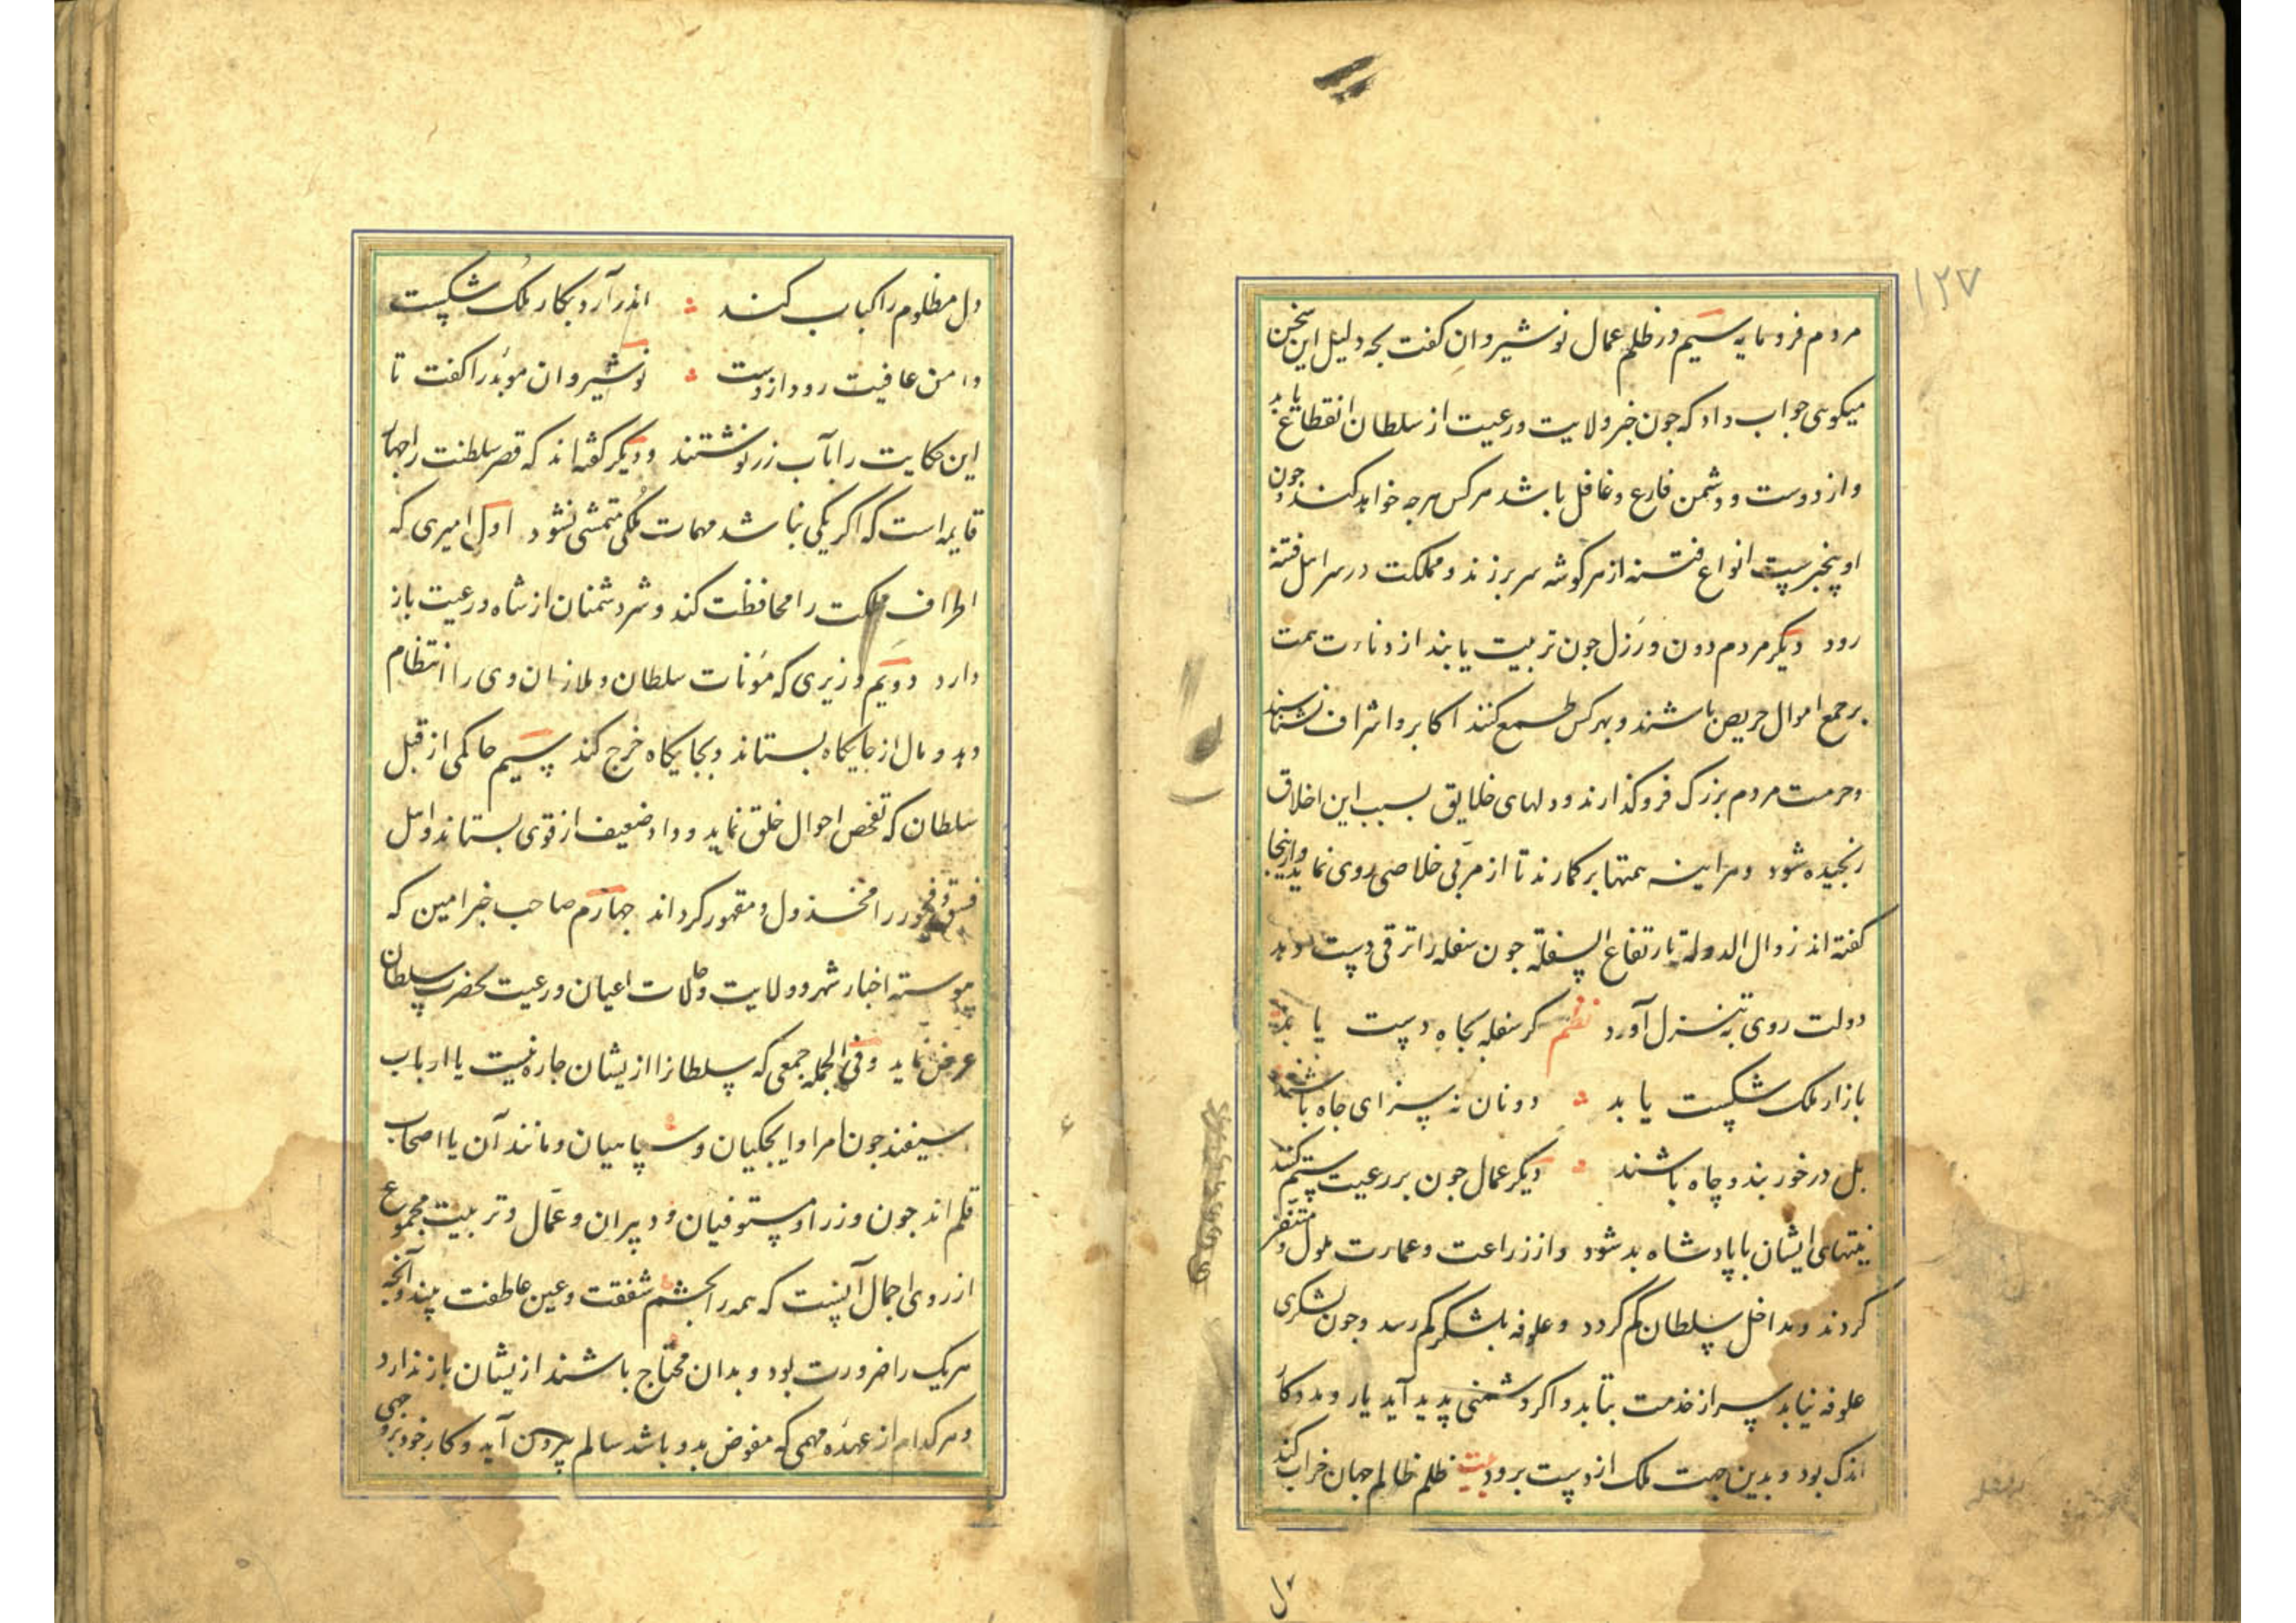 ۱۲۷
مردم فرومایه سیم در ظلم عمال نوشیروان کفت بجه دلیل این سخن
میکویی جواب داد که جون خبر ولایت ورعیت از سلطان انقطاع یابد
واز دوست ودشمن فارغ وغافل باشد هرکس هرجه خواهد کند وجون
او بیخبرست انواع فتنه از هر کوشه سر برزند ومملکت در سر اهل فتنه
رود دیکر مردم دون ورذل جون تربیت یابند از دناءت همت
بر جمع اموال حریص باشند وبهر کس طمع کنند اکابر واشراف نشناسند
وحرمت مردم بزرک فروکذارند ودلهای خلایق بسبب این اخلاق
رنجیده شود وهراینه همتها برکمارند تا از مربی خلاصی روی نماید وازینجا
کفته اند زوال الدولة بارتفاع السفلة جون سفله را ترقی دست دهد
دولت روی به تنزل آورد نظم کر سفله بجاه دست یابد
بازار ملک شکست یابد دونان نه سزای جاه باشند
بل درخور بند وچاه باشند دیکر عمال جون بر رعیت ستم کنند
نیتهای ایشان با پادشاه بد شود واز زراعت وعمارت ملول ومتنفر
کردند ومداخل سلطان کم کردد وعلوفه بلشکر کم رسد وجون لشکری
علوفه نیابد سر از خدمت بتابد واکر دشمنی پدید آید یار ومددکار
اندک بود وبدین جهت ملک از دست برود بیت ظلم ظالم جهان خراب کند
دل
دل مظلوم را کباب کند اندر آرد بکار ملک شکست
دامن عافیت رود از دست نوشیروان موبد را کفت تا
این حکایت را بآب زر نوشتند ودیکر کفته اند که قصر سلطنت را جهار
قایمه است که اکر یکی نباشد مهمات ملکی متمشی نشود اول امیری که
اطراف مملکت را محافظت کند وشر دشمنان از شاه ورعیت باز
دارد دویم وزیری که مؤنات سلطان وملازمان وی را انتظام
دهد ومال از جایکاه بستاند وبجایکاه خرج کند سیم حاکمی از قبل
سلطان که تفحص احوال خلق نماید وداد ضعیف از قوی بستاند واهل
فسق وفجور را مخذول ومقهور کرداند جهارم صاحب خبر امین که
پیوسته اخبار شهر وولایت وحالات اعیان ورعیت بحضرت سلطان
عرض نماید وفی الجمله جمعی که سلطانرا ازیشان جاره نیست یا ارباب
سیفند جون امرا وایجکیان وسپاهیان ومانند آن یا اصحاب
قلم اند جون وزرا ومستوفیان ودبیران وعمّال وتربیت مجموع
از روی اجمال آنست که همه را بچشم شفقت وعین عاطفت بیند وآنجه
هریک را ضرورت بود وبدان محتاج باشند ازیشان باز ندارد
وهرکدام از عهده مهمی که مفوض بدو باشد سالم بیرون آید وکار خود بر وجهی